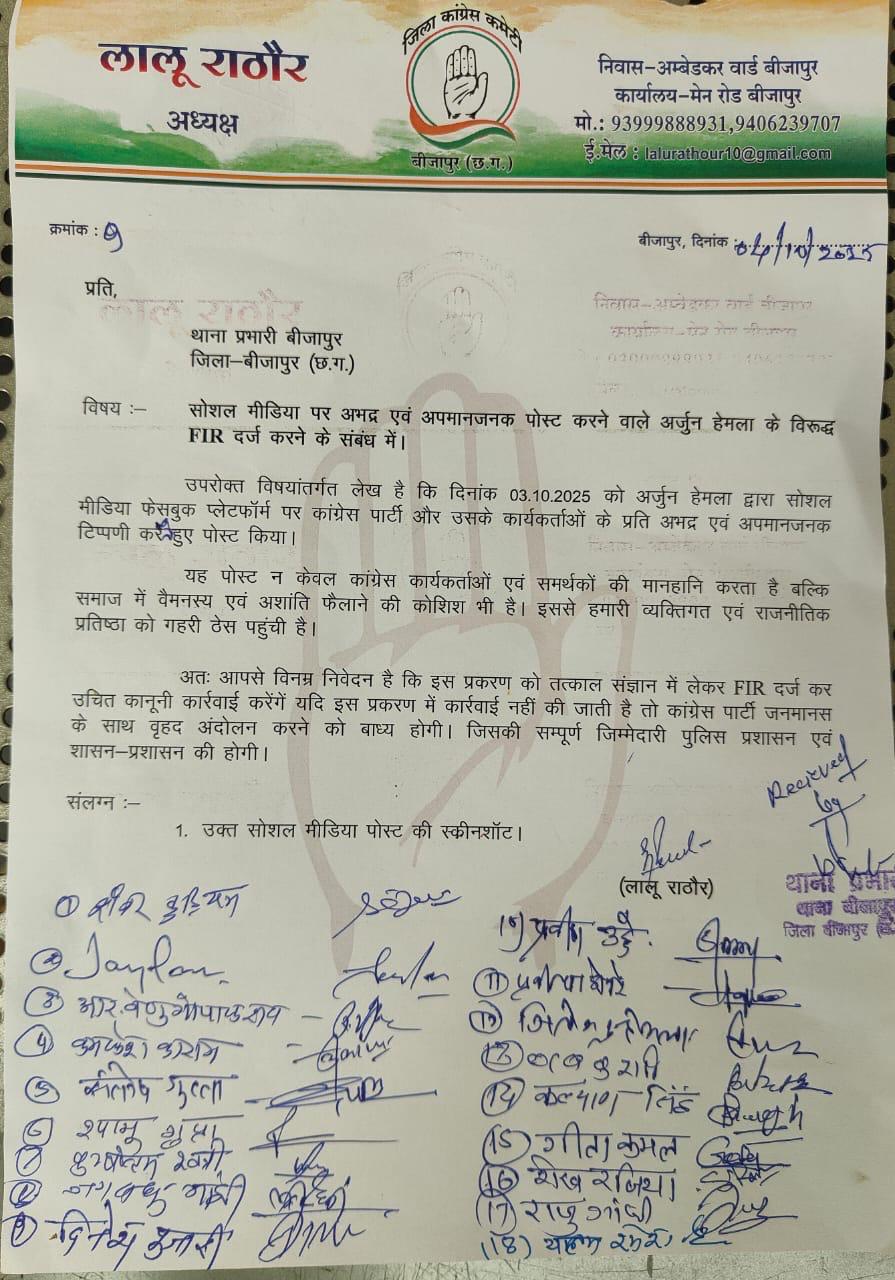 लालू राठौर
अध्यक्ष
जिला कांग्रेस कमेटी
बीजापुर (छ.ग.)
निवास-अम्बेडकर वार्ड बीजापुर
कार्यालय-मेन रोड बीजापुर
मो.: 93999888931,9406239707
ई.मेल : lalurathour10@gmail.com
क्रमांक : 9
बीजापुर, दिनांक : 04/10/2025
प्रति,
थाना प्रभारी बीजापुर
जिला-बीजापुर (छ.ग.)
विषय :- सोशल मीडिया पर अभद्र एवं अपमानजनक पोस्ट करने वाले अर्जुन हेमला के विरूद्ध
FIR दर्ज करने के संबंध में।
उपरोक्त विषयांतर्गत लेख है कि दिनांक 03.10.2025 को अर्जुन हेमला द्वारा सोशल
मीडिया फेसबुक प्लेटफॉर्म पर कांग्रेस पार्टी और उसके कार्यकर्ताओं के प्रति अभद्र एवं अपमानजनक
टिप्पणी करते हुए पोस्ट किया।
यह पोस्ट न केवल कांग्रेस कार्यकर्ताओं एवं समर्थकों की मानहानि करता है बल्कि
समाज में वैमनस्य एवं अशांति फैलाने की कोशिश भी है। इससे हमारी व्यक्तिगत एवं राजनीतिक
प्रतिष्ठा को गहरी ठेस पहुंची है।
अतः आपसे विनम्र निवेदन है कि इस प्रकरण को तत्काल संज्ञान में लेकर FIR दर्ज कर
उचित कानूनी कार्रवाई करेंगें यदि इस प्रकरण में कार्रवाई नहीं की जाती है तो कांग्रेस पार्टी जनमानस
के साथ वृहद अंदोलन करने को बाध्य होगी। जिसकी सम्पूर्ण जिम्मेदारी पुलिस प्रशासन एवं
शासन-प्रशासन की होगी।
संलग्न :-
1. उक्त सोशल मीडिया पोस्ट की स्कीनशॉट।
Recieved
by
(लालू राठौर)
थाना प्रभारी
थाना बीजापुर
जिला बीजापुर
①
②
③ आर. वेणुगोपाल राव
④ कमलेश कारम
⑤ गुप्ता
⑥ श्यामु गुप्ता
⑦ पुरुषोत्तम खत्री
⑧
⑨ दिनेश पुजारी
10) प्रवीण उद्दे
⑪
⑫
⑬
⑭ कल्याण सिंह
⑮ गीता कमल
⑯ शेख रजिया
⑰ राजु गांधी
(18)